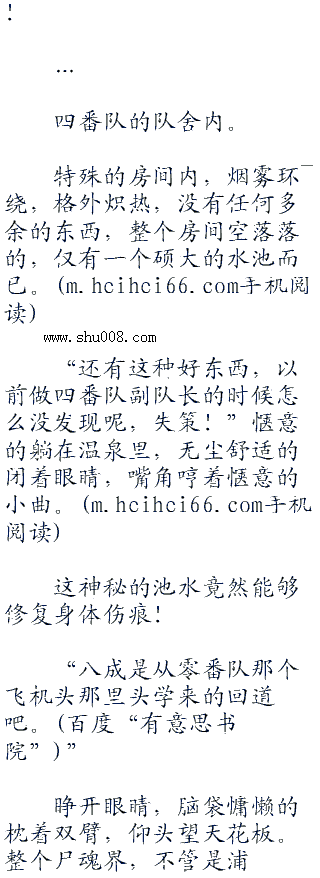 !
…
四番队的队舍内。
特殊的房间内，烟雾环
绕，格外炽热，没有任何多
余的东西，整个房间空落落
的，仅有一个硕大的水池而
已。(m.hcihci66.com手机阅
读)
www.shu008.com
“还有这种好东西，以
前做四番队副队长的时候怎
么没发现呢，失策！”惬意
的躺在温泉里，无尘舒适的
闭着眼睛，嘴角哼着惬意的
小曲。(m.hcihci66.com手机
阅读)
这神秘的池水竟然能够
修复身体伤痕！
“八成是从零番队那个
飞机头那里头学来的回道
吧。(百度“有意思书
院”)”
睁开眼睛，脑袋慵懒的
枕着双臂，仰头望天花板。
整个尸魂界，不管是浦